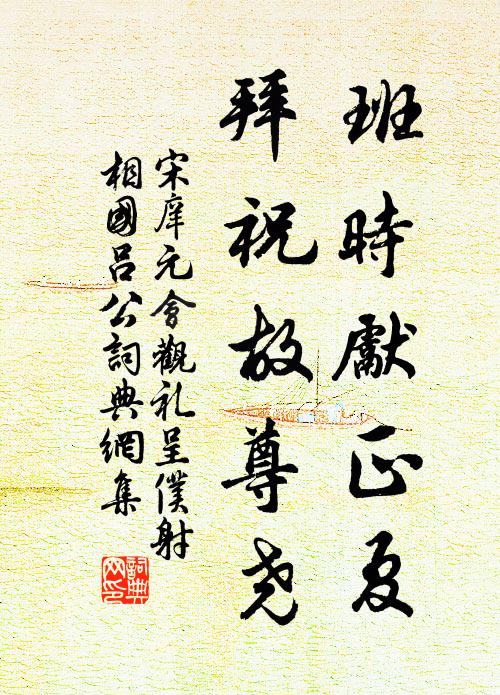 班時獻正夏
拜祝故尊尧
宋庠元會觀礼呈僕射
相國吕公詞典網集
詞典网印